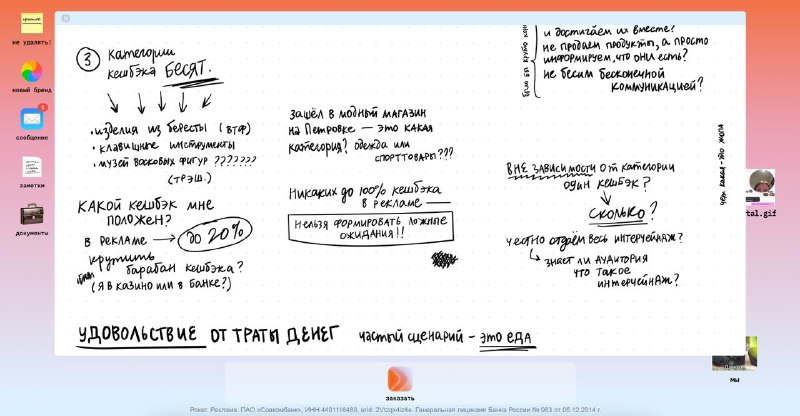 не удалять!
новый бренд
сообщение
заметки
документы
3 категории
кешбэка БЕСЯТ.
• изделия из бересты (втф)
• клавишные инструменты
• музей восковых фигур ???????
(трэш.)
какой кешбэк мне
положен?
в рекламе → до 20%
крутить
барабан кешбэка?
(я в казино или в банке?)
зашёл в модный магазин
на Петровке — это какая
категория? одежда или
спорттовары???
Никаких до 100% кешбэка
в рекламе —
НЕЛЬЗЯ ФОРМИРОВАТЬ ЛОЖНЫЕ
ОЖИДАНИЯ!!
и достигаем их вместе?
не продаем продукты, а просто
информируем, что они есть?
не бесим бесконечной
коммуникацией?
было бы круто
ВНЕ ЗАВИСИМОСТИ от категории
один кешбэк?
СКОЛЬКО?
честно отдаём весь интерчейндж?
знает ли аудитория
что такое
интерчейндж?
tal.gif
мы
УДОВОЛЬСТВИЕ ОТ ТРАТЫ ДЕНЕГ
частый сценарий – это еда
заказать
Рокет. Реклама. ПАО «Совкомбанк», ИНН 4401116480, erid: Генеральная лицензия Банка России № 963 от 05.12.2014 г.